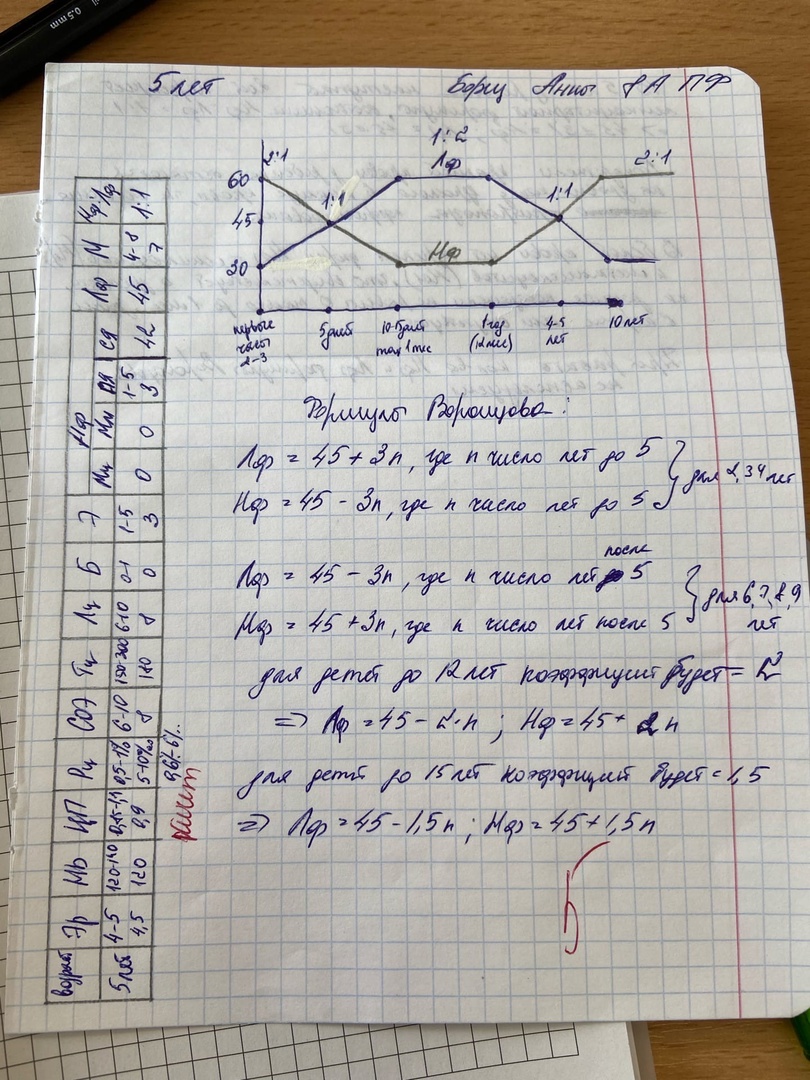 5 лет
Борщ Анны 8А ПФ
1:2
2:1 Лф 2:1
60
1:1 1:1
45
Нф
30
первые часы 2-3
5 дней
10-15 дней max 1 мес
1 год (12 мес)
4-5 лет
10 лет
Формулы Воронцова:
Лф = 45 + 3n, где n число лет до 5
Нф = 45 - 3n, где n число лет до 5
для 2,3 4 лет
после
Лф = 45 - 3n, где n число лет 5
Нф = 45 + 3n, где n число лет после 5
для 6,7,8,9 лет
для детей до 12 лет коэффициент будет = 2
=> Лф = 45 - 2·n ; Нф = 45 + 2n
для детей до 15 лет коэффициент будет = 1,5
=> Лф = 45 - 1,5n ; Нф = 45 + 1,5n
5
возраст Эр Hb ЦП Рц СОЭ Тц Лц Б Э Нф Лф М Нф:Лф
Мц Мм ПЯ СЯ
5 лет 4-5 120-140 0,85-1,1 0,5-1% 6-10 150-300 6-10 0-1 1-5 0 0 1-5 42 45 4-8 1:1
4,5 120 0,9 5-10‰ 8 180 8 0 3 3 7
0,5 mm